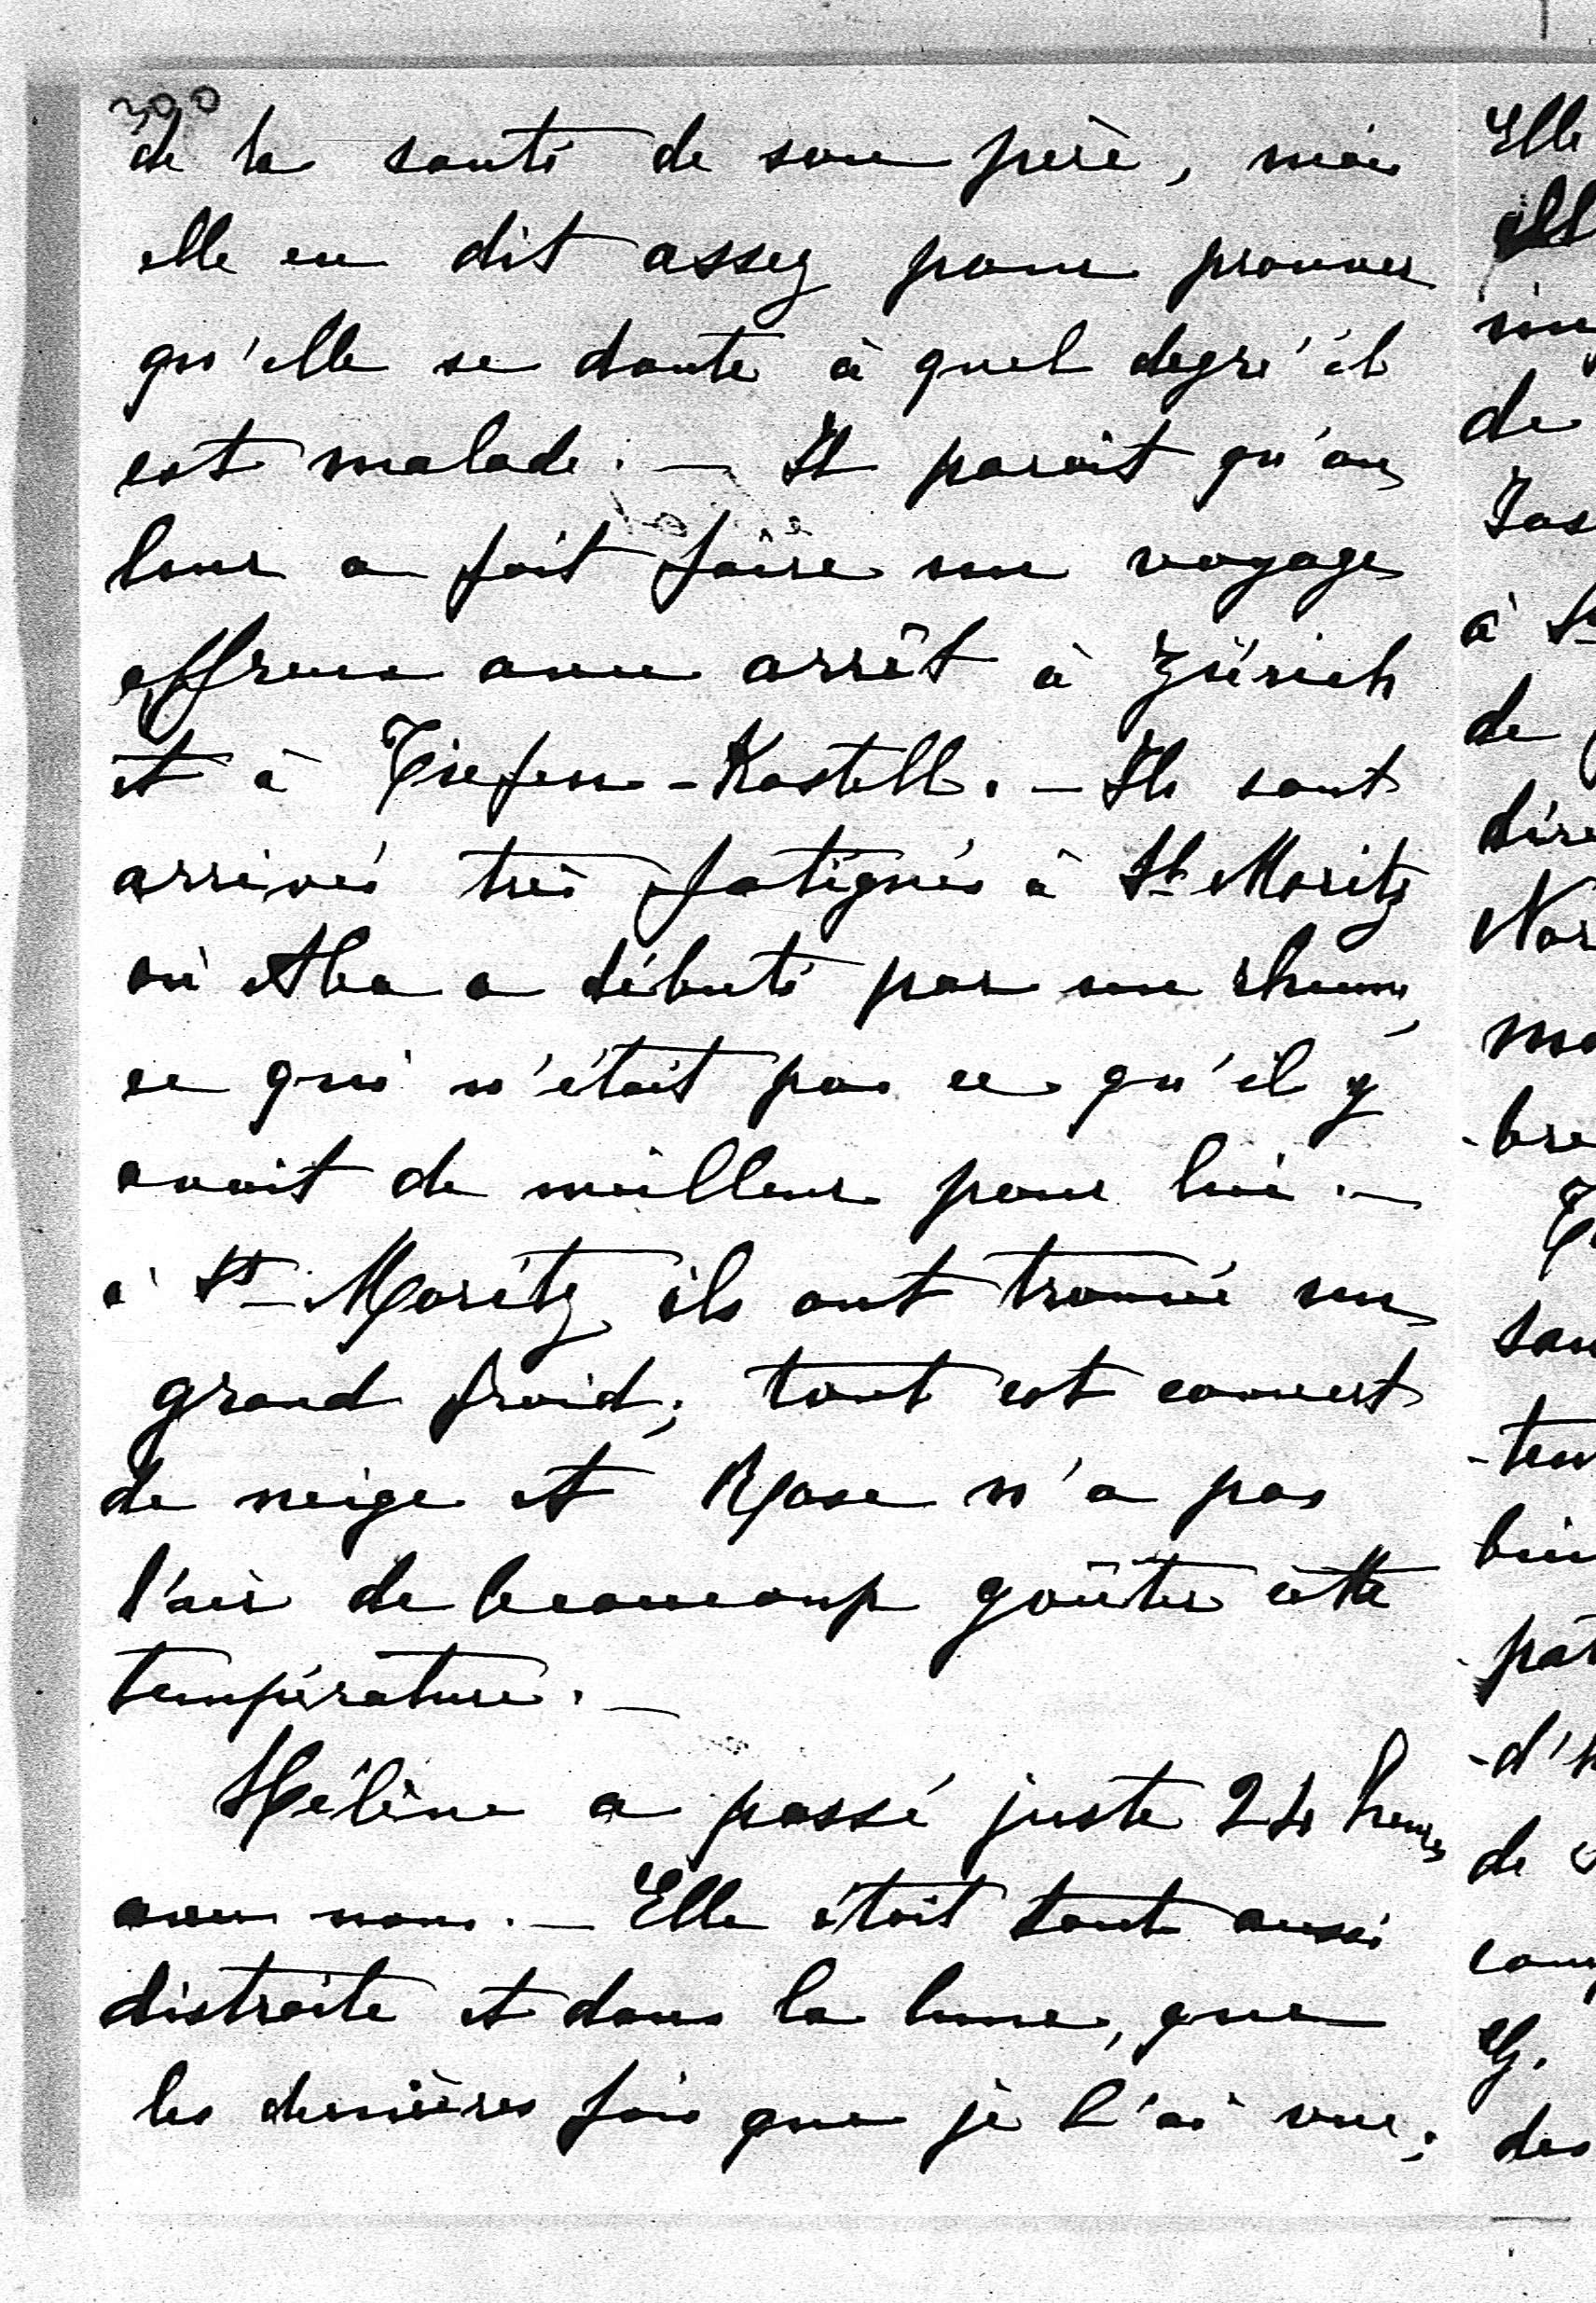 300
de la santé de son père, mais
elle en dit assez pour prouver
qu'elle se doute à quel degré il
est malade. — Il paraît qu'on
leur a fait faire un voyage
affreux avec arrêt à Zürich
et à Tiefen-Kastell. — Ils sont
arrivés très fatigués à St Moritz
où Aba a débuté par un rhume,
ce qui n'était pas ce qu'il y
avait de meilleur pour lui. —
à St Moritz ils ont trouvé un
grand froid; tout est couvert
de neige et Rose n'a pas
l'air de beaucoup goûter cette
température. —
Hélène a passé juste 24 heures
avec nous. — Elle était tout aussi
distraite et dans la lune, que
les dernières fois que je l'ai vue;
Elle
de
à St
de
dire
Nor
-bre
-ten
bien
-d'h
de
G.
des